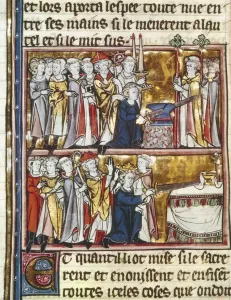 et lors aporta lespee toute nue en
tre ses mains si le menerent alau
tel et si le mit sus
Et quant il i ot mise si le sacre
rent et enoinssent et en fisent
toutes iceles coses que on doit